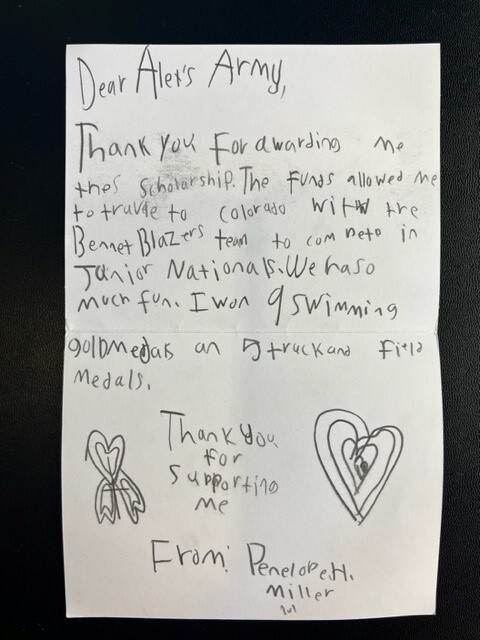 Dear Alex's Army,
Thank you for awarding me
thes scholarship. The funds allowed me
to travle to colorado with the
Bennet Blazers team to compete in
Junior Nationals. We ha so
much fun. I won 9 swimming
gold medals an 5 truck and field
medals.
Thank you
for
supporting
me
From: Penelope H.
Miller